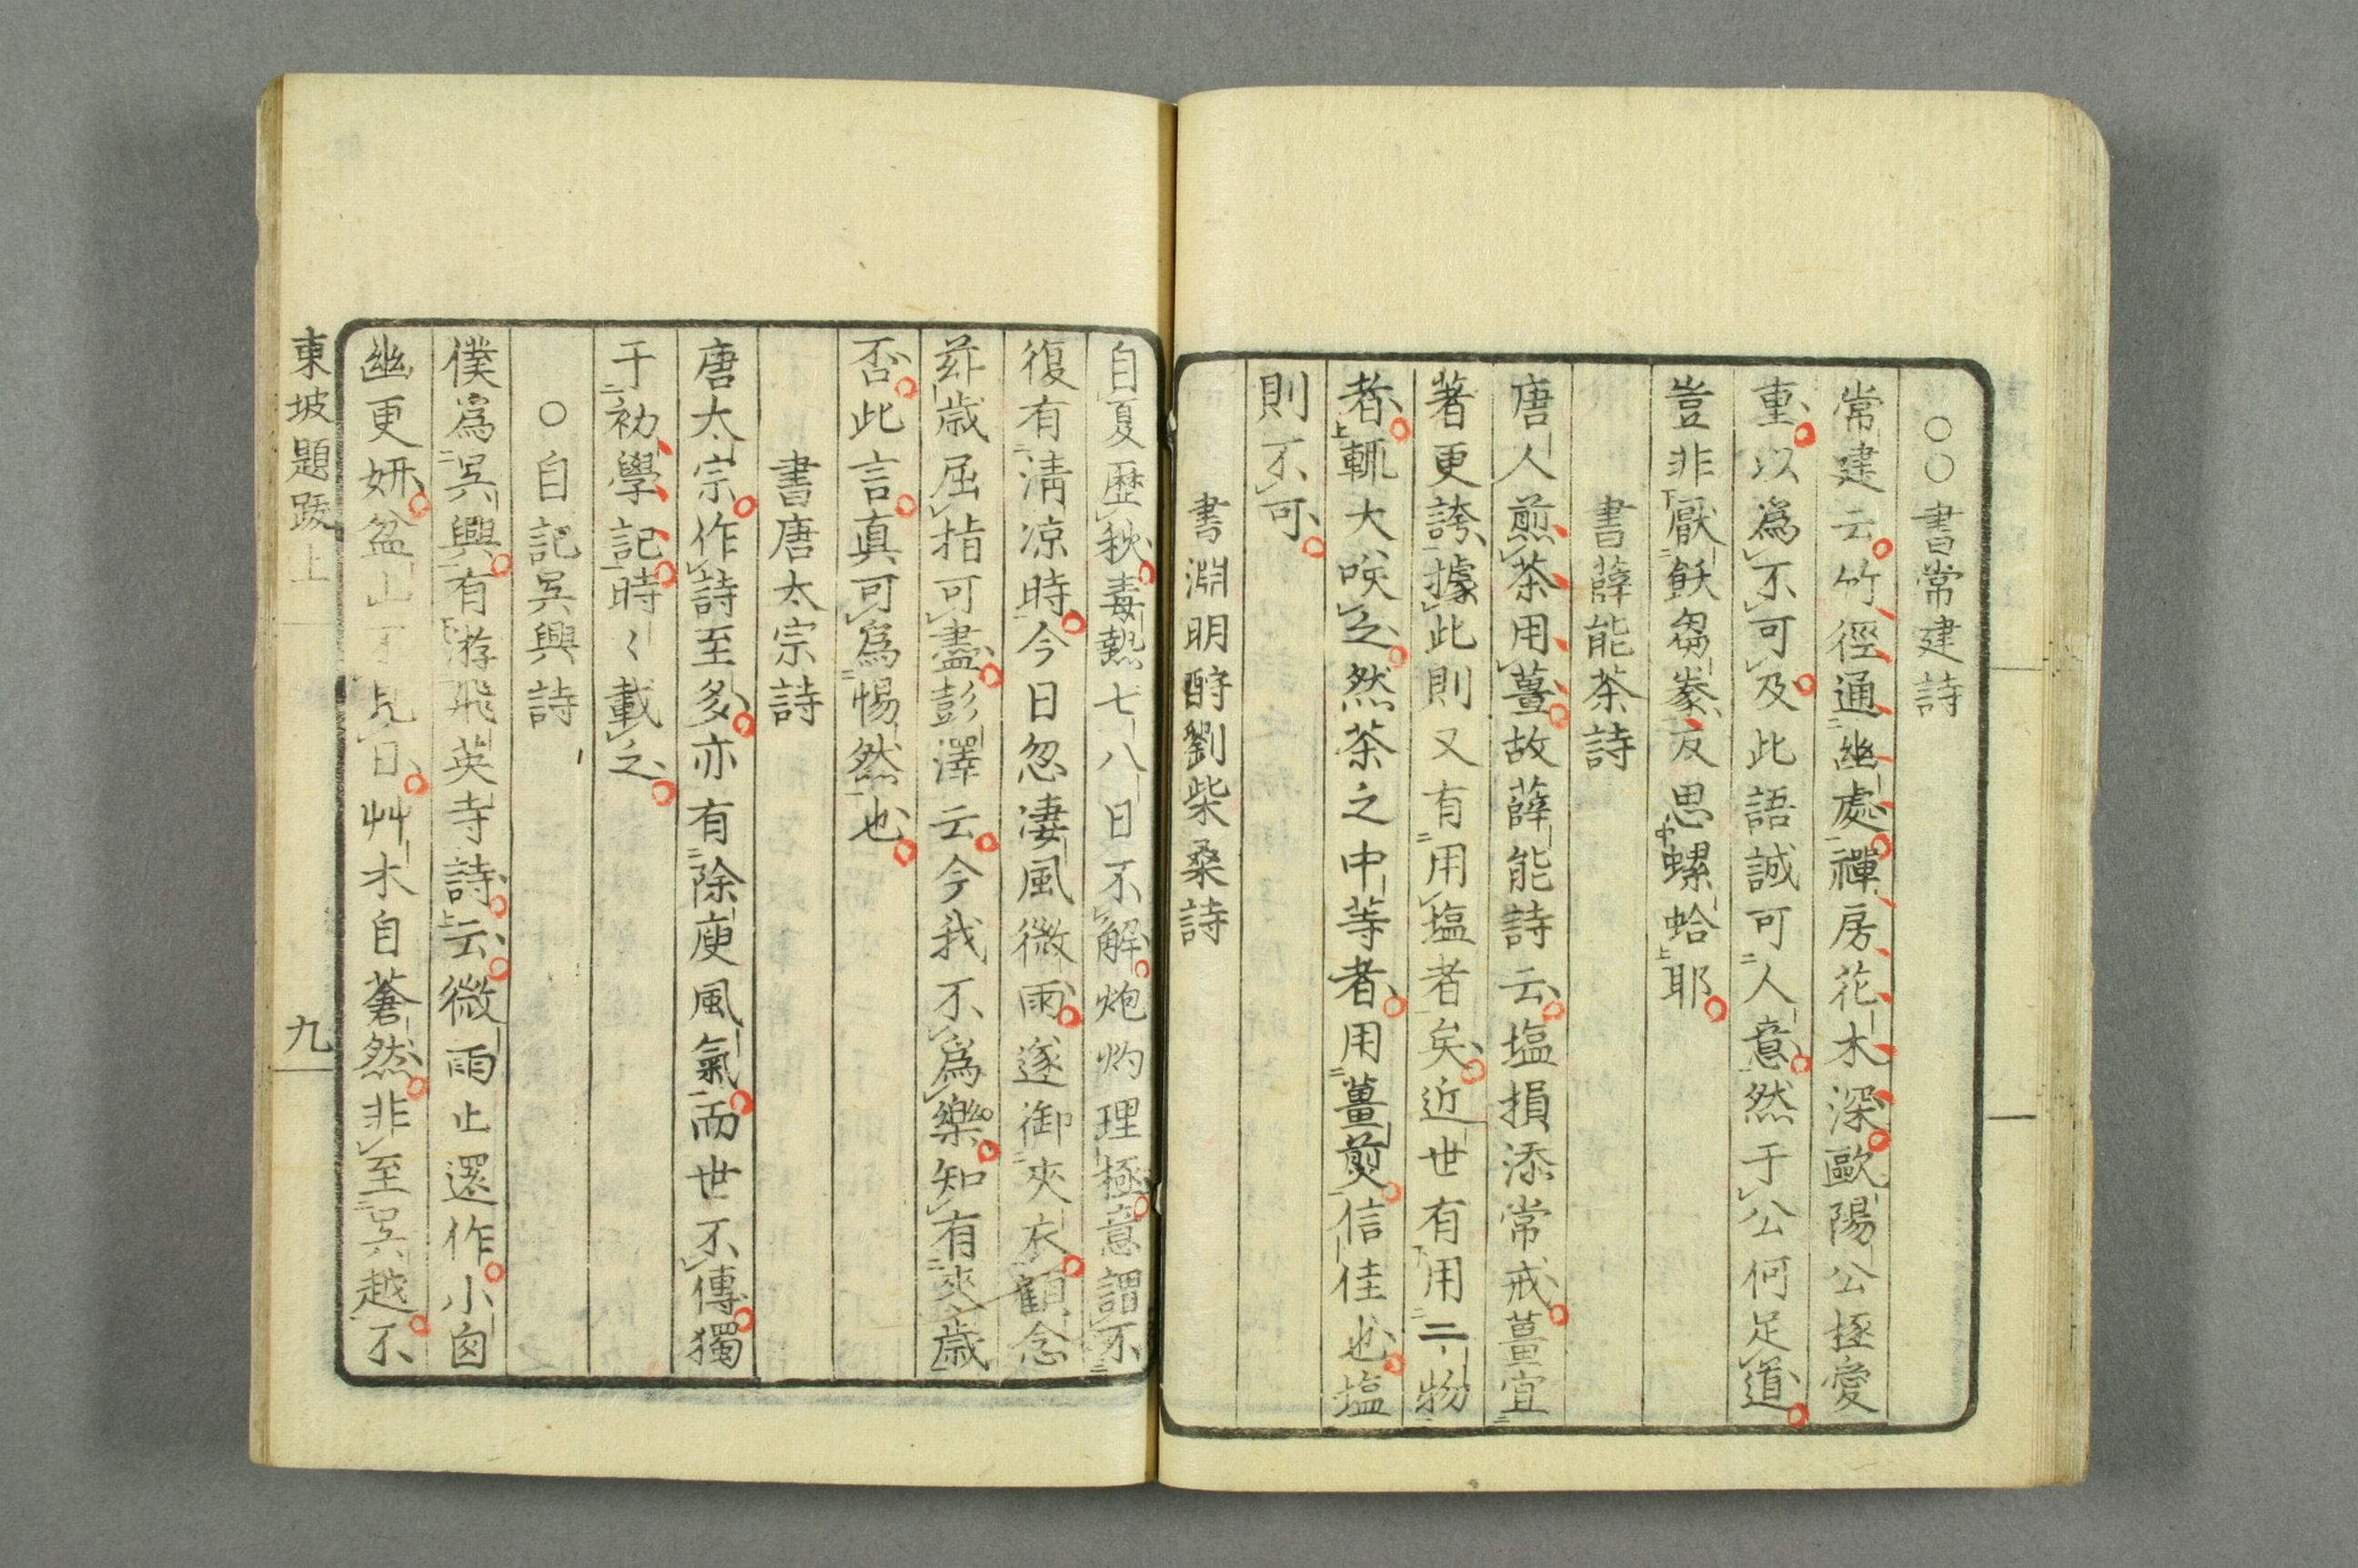 ○○書常建詩
常建云竹徑通幽處禪房花木深歐陽公極愛
重以爲不可及此語誠可人意然于公何足道
豈非厭飫芻豢反思螺蛤耶
書薛能茶詩
唐人煎茶用薑故薛能詩云塩損添常戒薑宜
著更誇據此則又有用塩者矣近世有用二物
者輒大咲之然茶之中等者用薑煎信佳也塩
則不可
書淵明酧劉柴桑詩
自夏歷秋毒熱七八日不解炮灼理極意謂不
復有淸凉時今日忽凄風微雨遂御夾衣顧念
茲歳屈指可盡彭澤云今我不爲樂知有來歳
否此言眞可爲惕然也
書唐太宗詩
唐太宗作詩至多亦有除庾風氣而世不傳獨
于初學記時〻載之
○自記吳興詩
僕爲吳興有游飛英寺詩云微雨止還作小囪
幽更妍盆山不見日艸木自蒼然非至吳越不
東坡題跋上
九